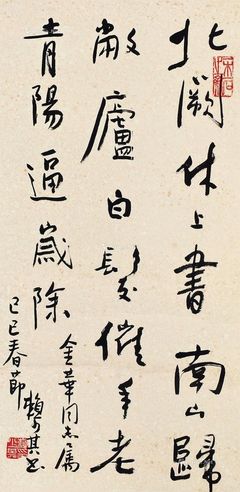 北闕休上書南山歸
敝廬白髮催年老
青陽逼歲除
金華同志屬
己巳春節 賴少其书